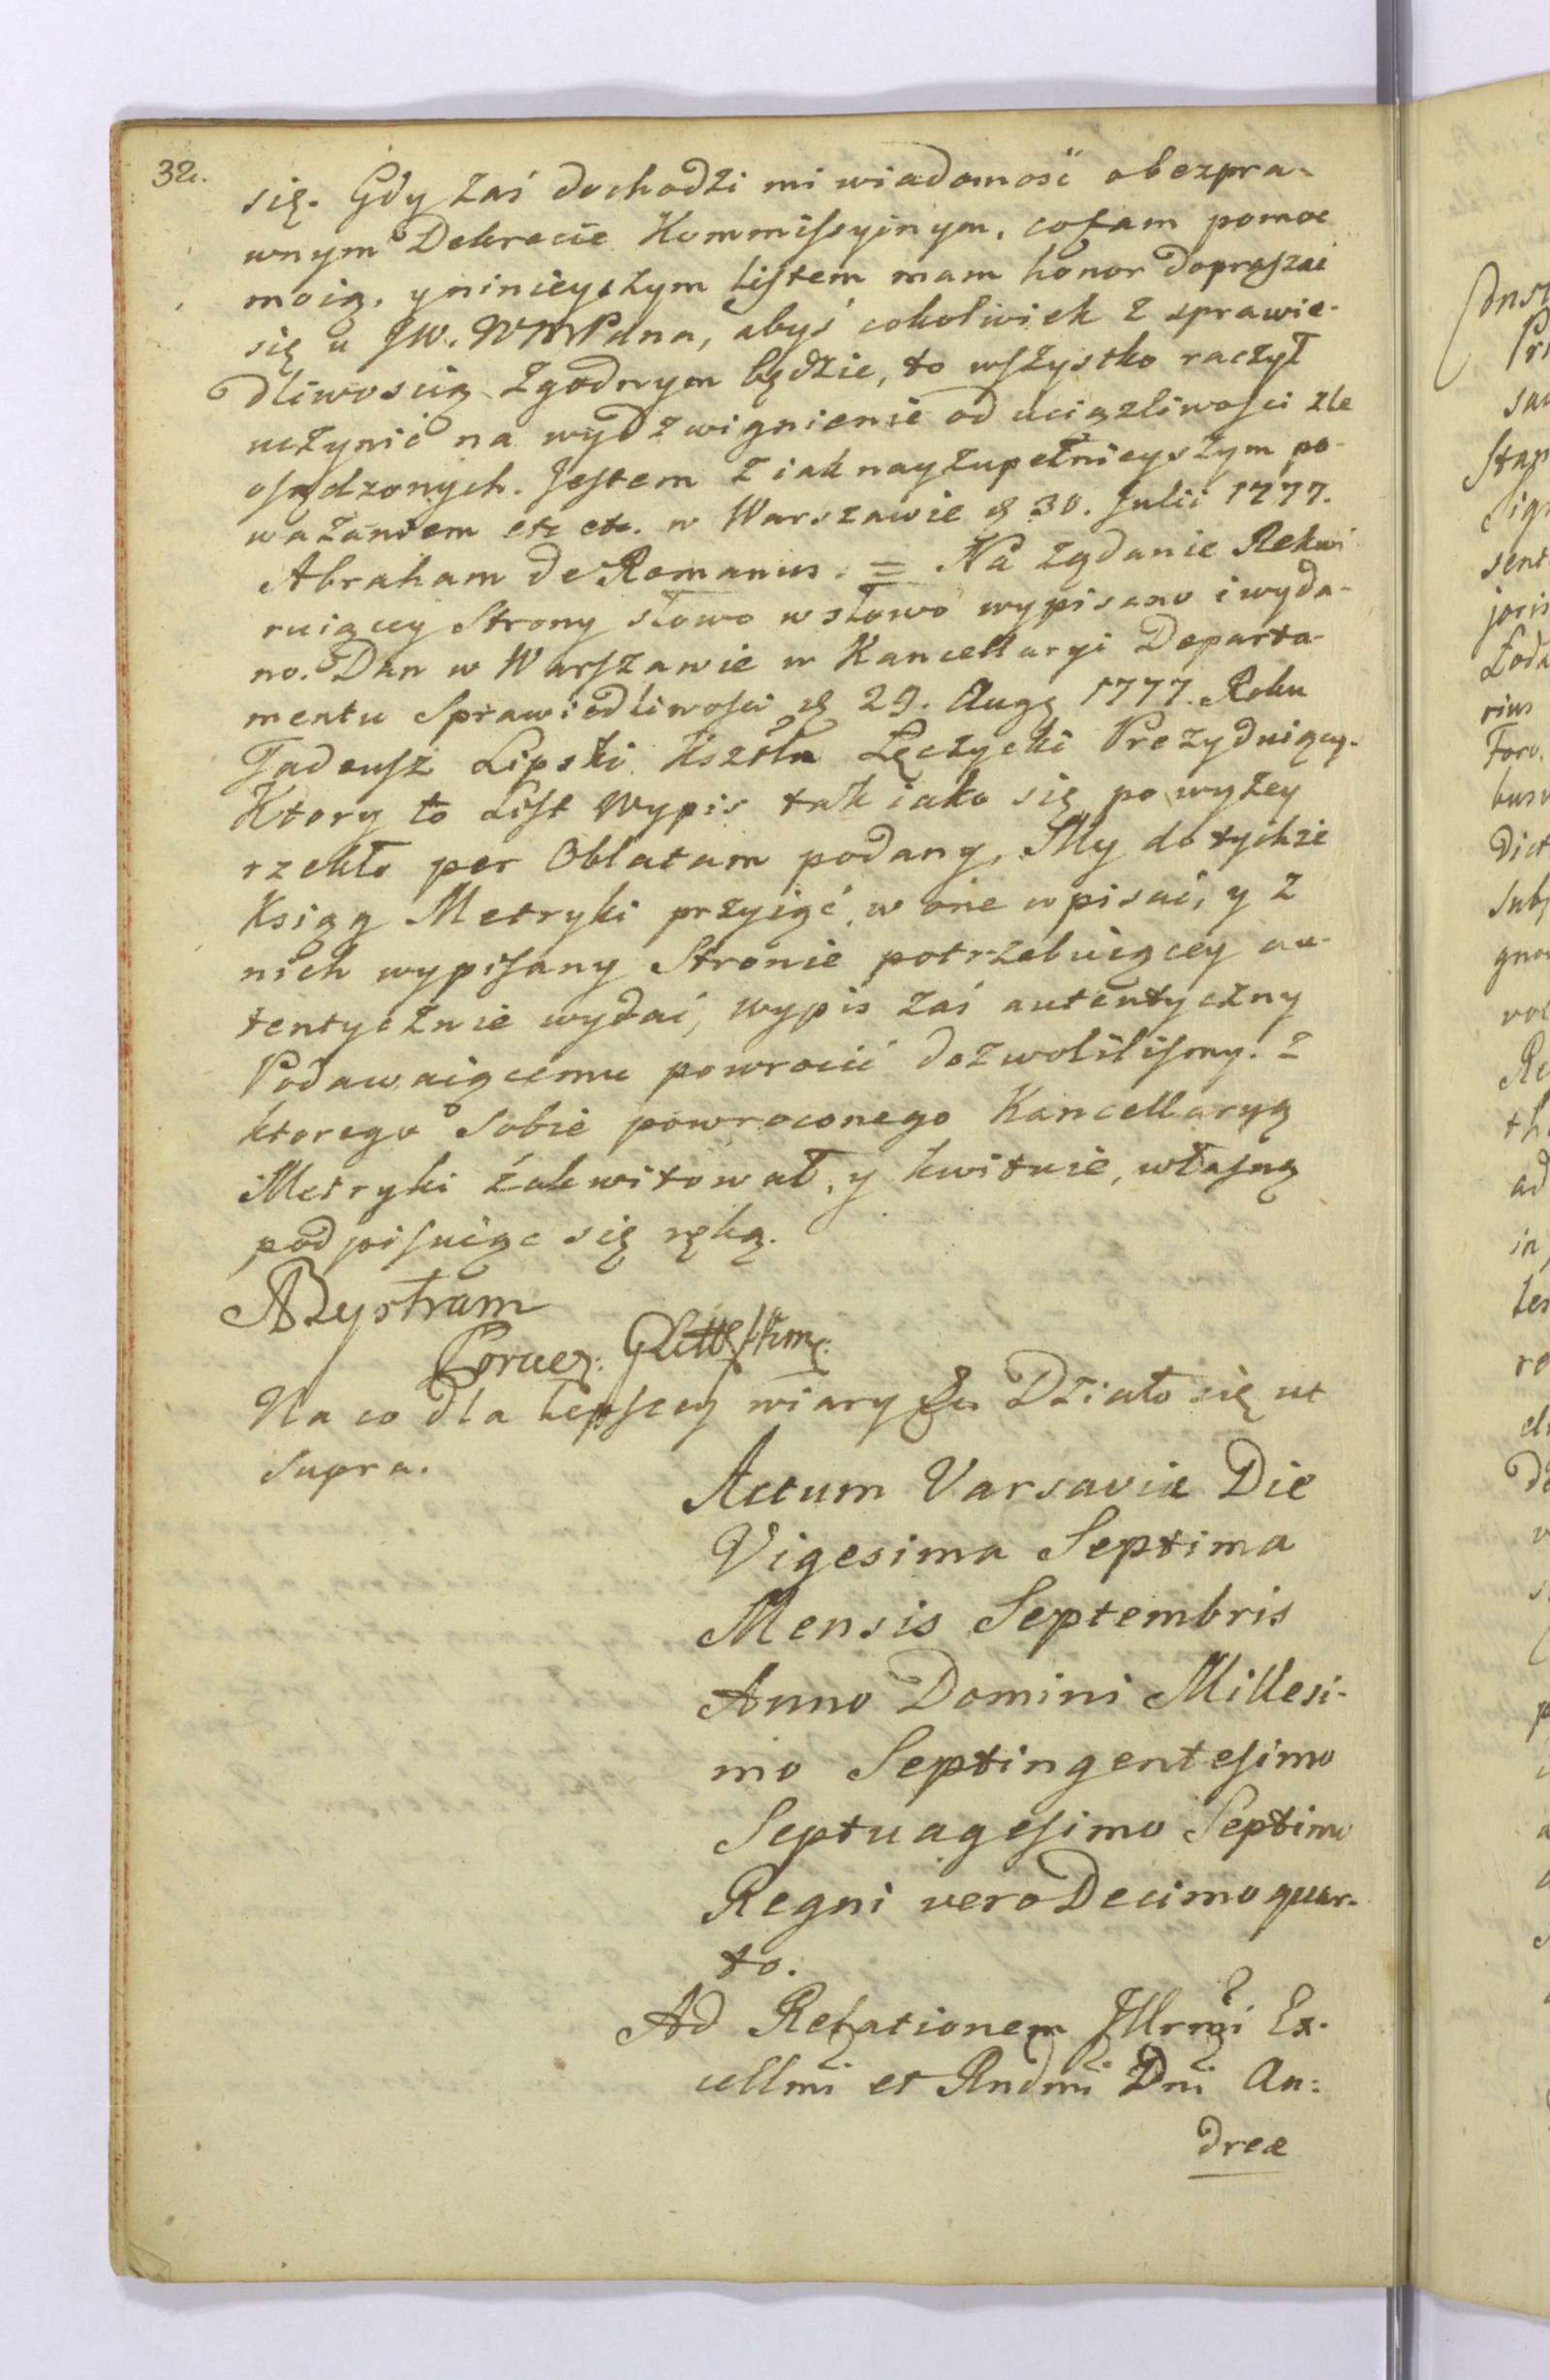 32.
się. Gdy zaś dochodzi mi wiadomość o bezpra-
wnym Dekrecie Kommissyinym, cofam pomoc
moią, y ninieyszym listem mam honor dopraszać
się u JW. WMPana, abyś cokolwiek z sprawie-
dliwością zgodnym będzie, to wszystko raczył
uczynić na wydzwignienie od uciązliwosci zle
osądzonych. Jestem z iak nayzupełnieyszym po-
wazaniem etc etc. w Warszawie d 30. Julii 1777.
Abraham de Romanus. = Na ządanie Rekwi
ruiącey Strony słowo w słowo wypisano i wyda-
no. Dan w Warszawie w Kancellaryi Departa-
mentu Sprawiedliwości d 29. Aug 1777. Roku
Tadeusz Lipski Ksztln Łęczycki Prezyduiący.
Ktory to List Wypis tak iako się powyżey
rzekło per Oblatam podany, My do tychże
Ksiąg Metryki przyiąć, w one wpisać, y z
nich wypisany Stronie potrzebuiącey au-
tentycznie wydać, wypis zaś autentyczny
Podawaiącemu powrocić dozwolilismy. Z
ktorego sobie powroconego Kancellaryą
Metryki zakwitował, y kwituie, własną
podpisuiąc się ręką.
ABystram
Poruez:
Na co dla lepszey wiary &c Działo się ut
supra.
Actum Varsaviæ Die
Vigesima Septima
Mensis Septembris
Anno Domini Millesi-
mo Septingentesimo
Septuagesimo Septimo
Regni vero Decimo quar-
to.
Ad Relationem Illrmi Ex-
cellmi et Rndmi Dni An:
dreæ